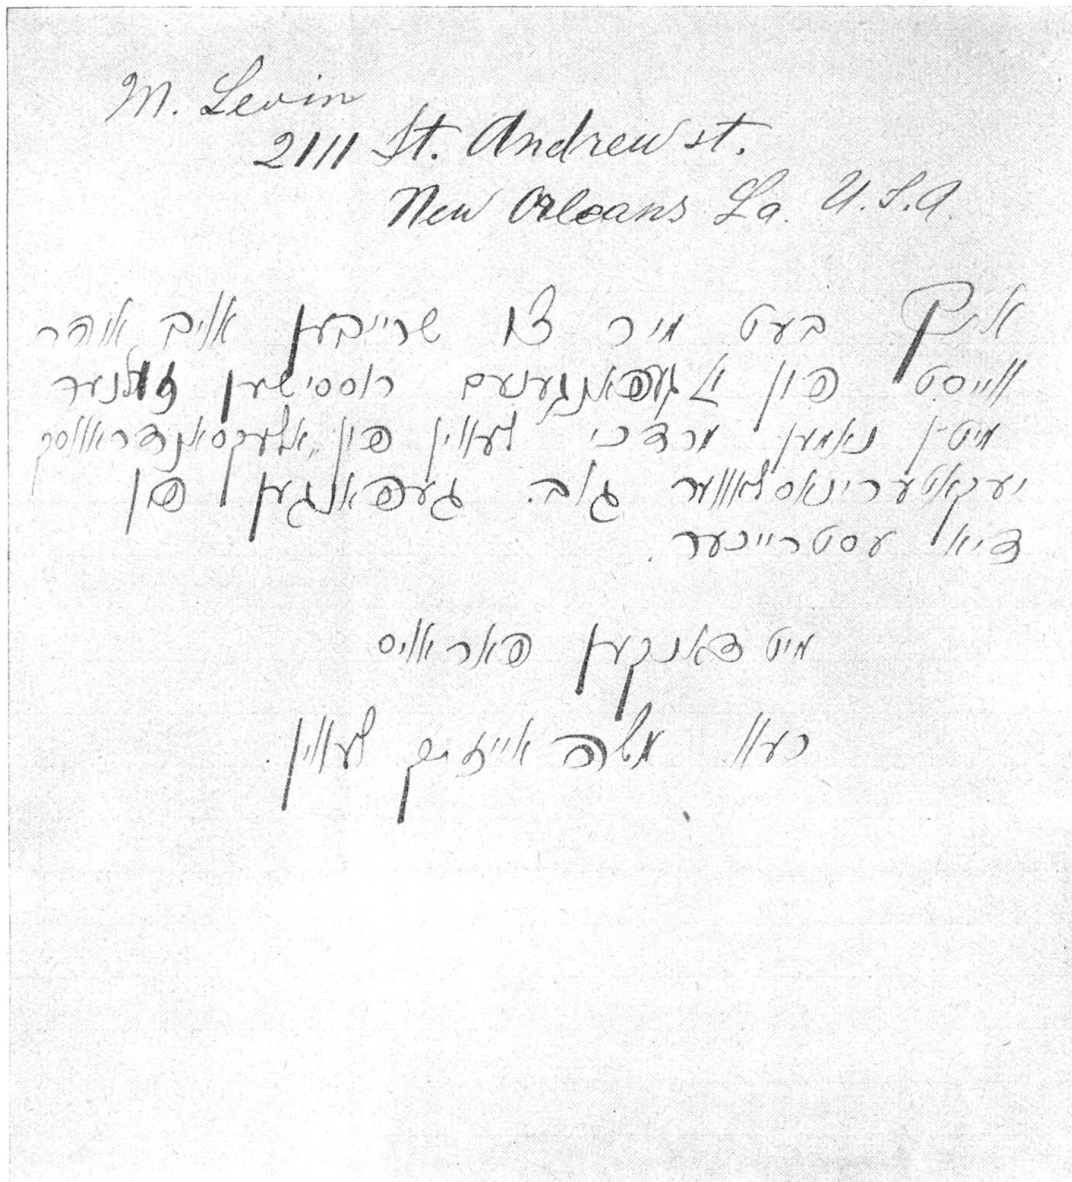 M. Levin
2111 St. Andrew st.
New Orleans La. U.S.A.
איך בעט מיר צו שרייבען אויב איהר
ווייסט פון א געפאנגענעם רוססישען זעלנער
מיט'ן נאמען מרדכי לעווין פון אלעקסאנדראווסק
יעקאטערינאסלאווער גוב. געפאנגען פון
דיא עסטרייכער.
מיט דאנקען פאראויס
משה אייזיק לעווין